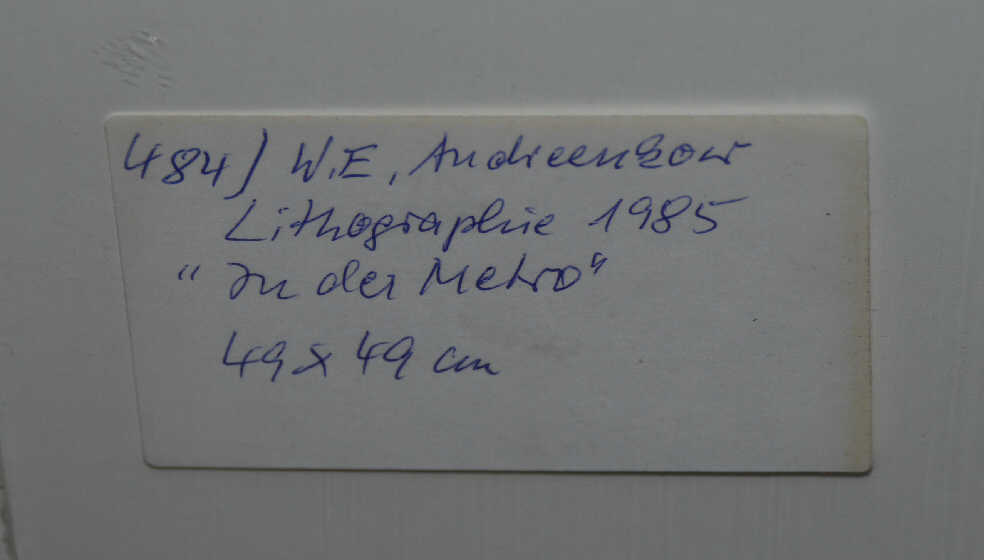 484) W.E. Andreenkow
Lithographie 1985
"In der Metro"
49 x 49 cm